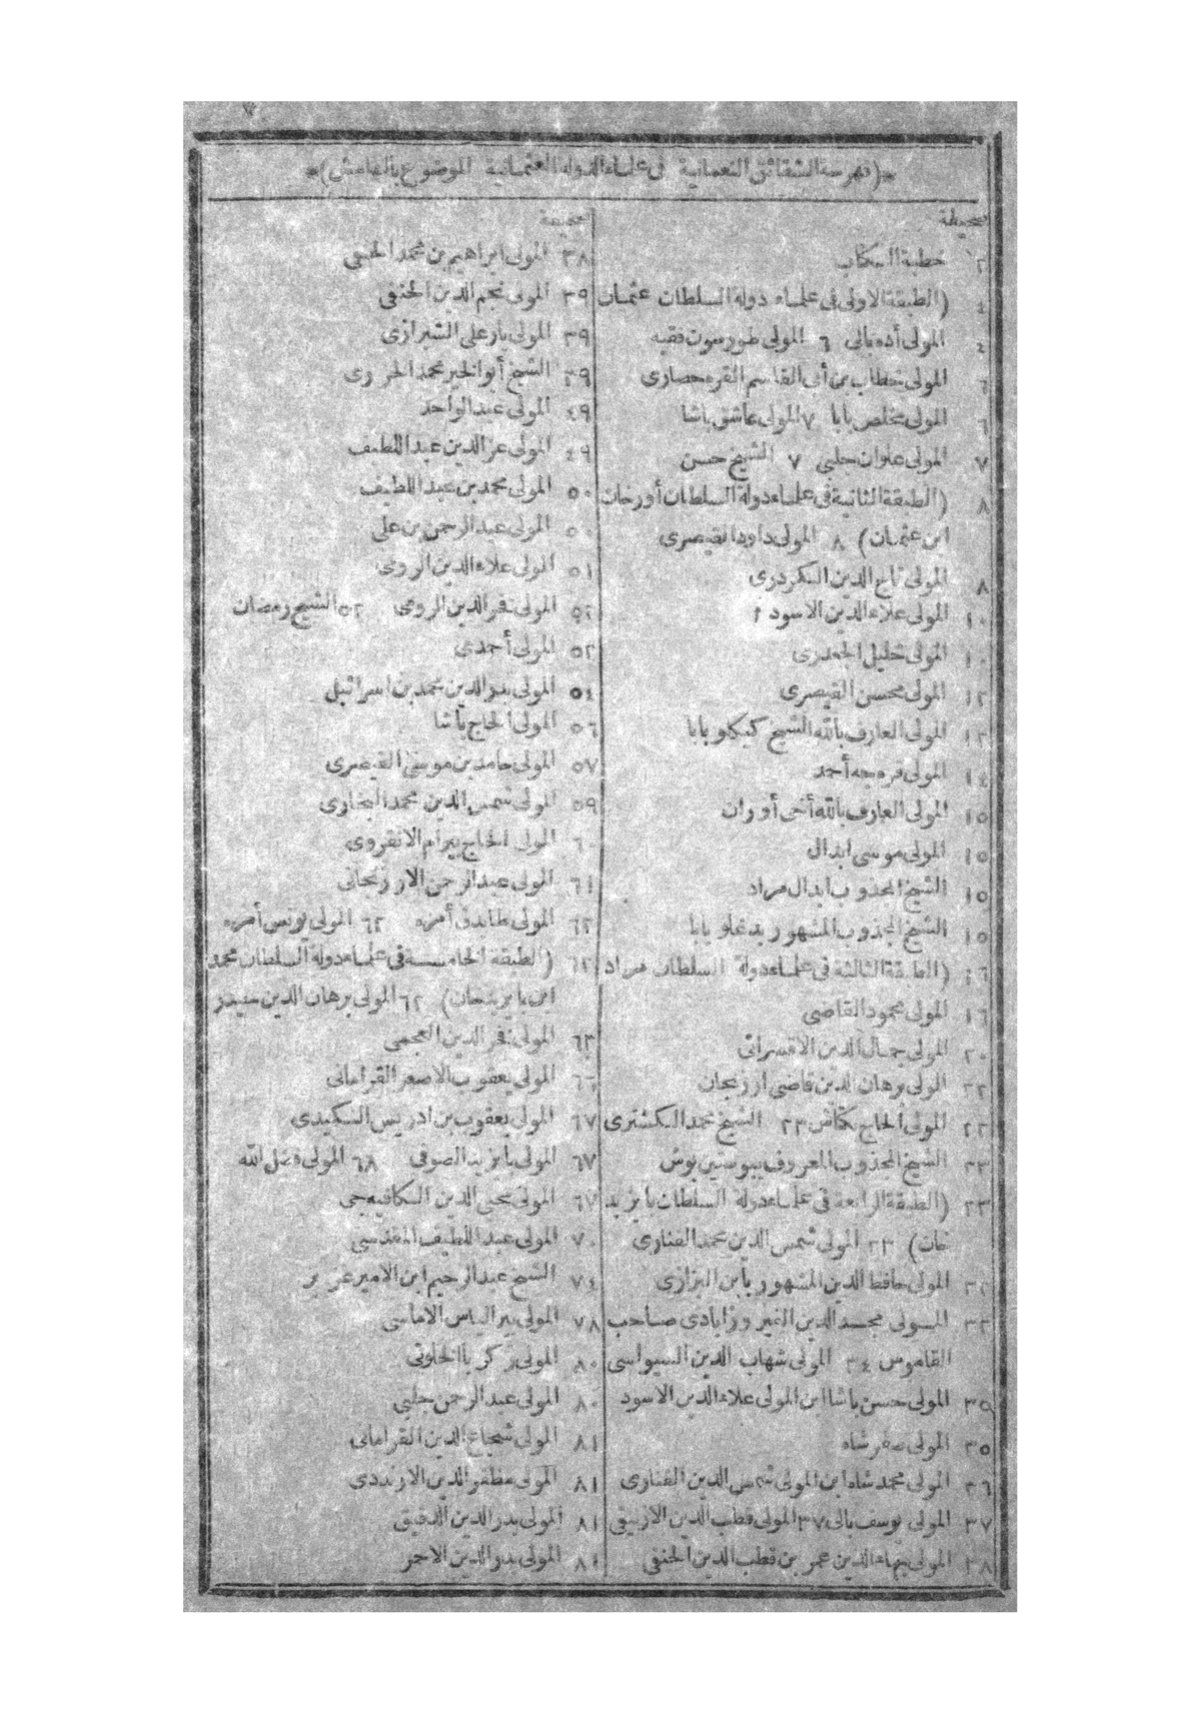 *(فهرسة الشقائق النعمانية فى علماء الدولة العثمانية الموضوع بالهامش)*
صحيفة
٢ خطبة الكتاب
٤ (الطبقة الاولى فى علماء دولة السلطان عثمان
٤ المولى أده بالى ٦ المولى طورسون فقيه
٦ المولى خطاب بن أبى القاسم القره حصارى
٦ المولى مخلص بابا ٧ المولى عاشق باشا
٧ المولى علوان جلبى ٧ الشيخ حسن
٨ (الطبقة الثانية فى علماء دولة السلطان أورخان
ابن عثمان) ٨ المولى داود القيصرى
٨ المولى تاج الدين الكردرى
١٠ المولى علاء الدين الاسود
١٠ المولى خليل الجندرى
١٢ المولى محسن القيصرى
١٣ المولى العارف بالله الشيخ كيكلو بابا
١٤ المولى قره جه أحمد
١٥ المولى العارف بالله أخى أوران
١٥ المولى موسى ابدال
١٥ الشيخ المجذوب ابدال مراد
١٥ الشيخ المجذوب المشهور بدغلو بابا
(الطبقة الثالثة فى علماء دولة السلطان مراد
١٦ المولى محمود القاضى
٢٠ المولى جمال الدين الاقسرائى
٢٢ المولى برهان الدين قاضى ارزنجان
٢٢ المولى الحاج بكتاش ٢٣ الشيخ محمد الكشترى
٢٣ الشيخ المجذوب المعروف ببوستين بوش
٢٣ (الطبقة الرابعة فى علماء دولة السلطان بايزيد
خان) ٢٣ المولى شمس الدين محمد الفنارى
٣٢ المولى حافظ الدين المشهور بابن البزازى
٣٢ المولى مجد الدين الفيروزابادى صاحب
القاموس ٣٤ المولى شهاب الدين السيواسى
٣٥ المولى حسن باشا ابن المولى علاء الدين الاسود
٣٥ المولى صفر شاه
٣٦ المولى محمد شاه ابن المولى شمس الدين الفنارى
٣٧ المولى يوسف بالى ٣٧ المولى قطب الدين الازنيقى
٣٨ المولى بهاء الدين عمر بن قطب الدين الحنفى
صحيفة
٣٨ المولى ابراهيم بن محمد الحنفى
٣٩ المولى نجم الدين الحنفى
٣٩ المولى يار على الشيرازى
٣٩ الشيخ أبو الخير محمد الجزرى
٤٩ المولى عبد الواحد
٤٩ المولى عز الدين عبد اللطيف
٥٠ المولى محمد بن عبد اللطيف
٥٠ المولى عبد الرحمن بن على
٥١ المولى علاء الدين الرومى
٥٢ المولى فخر الدين الرومى ٥٢ الشيخ رمضان
٥٢ المولى أحمدى
٥٤ المولى بدر الدين محمد بن اسرائيل
٥٦ المولى الحاج باشا
٥٧ المولى حامد بن موسى القيصرى
٥٩ المولى شمس الدين محمد البخارى
٦٠ المولى الحاج بيرام الانقروى
٦١ المولى عبد الرحمن الارزنجانى
٦٢ المولى طابدق أمره ٦٢ المولى يونس أمره
٦٢ (الطبقة الخامسة فى علماء دولة السلطان محمد
ابن بايزيد خان) ٦٢ المولى برهان الدين حيدر
٦٣ المولى فخر الدين العجمى
٦٦ المولى يعقوب الاصفر القرامانى
٦٧ المولى يعقوب بن ادريس النكيدى
٦٧ المولى بايزيد الصوفى ٦٨ المولى فضل الله
٦٧ المولى محيى الدين الكافيه جى
٧٠ المولى عبد اللطيف المقدسى
٧٤ الشيخ عبد الرحيم ابن الامير عزيز
٧٨ المولى بير الياس الاماسى
٨٠ المولى زكريا الخلوتى
٨٠ المولى عبد الرحمن جلبى
٨١ المولى شجاع الدين القرامانى
٨١ المولى مظفر الدين الارندى
٨١ المولى بدر الدين الدقيق
٨١ المولى بدر الدين الاحمر